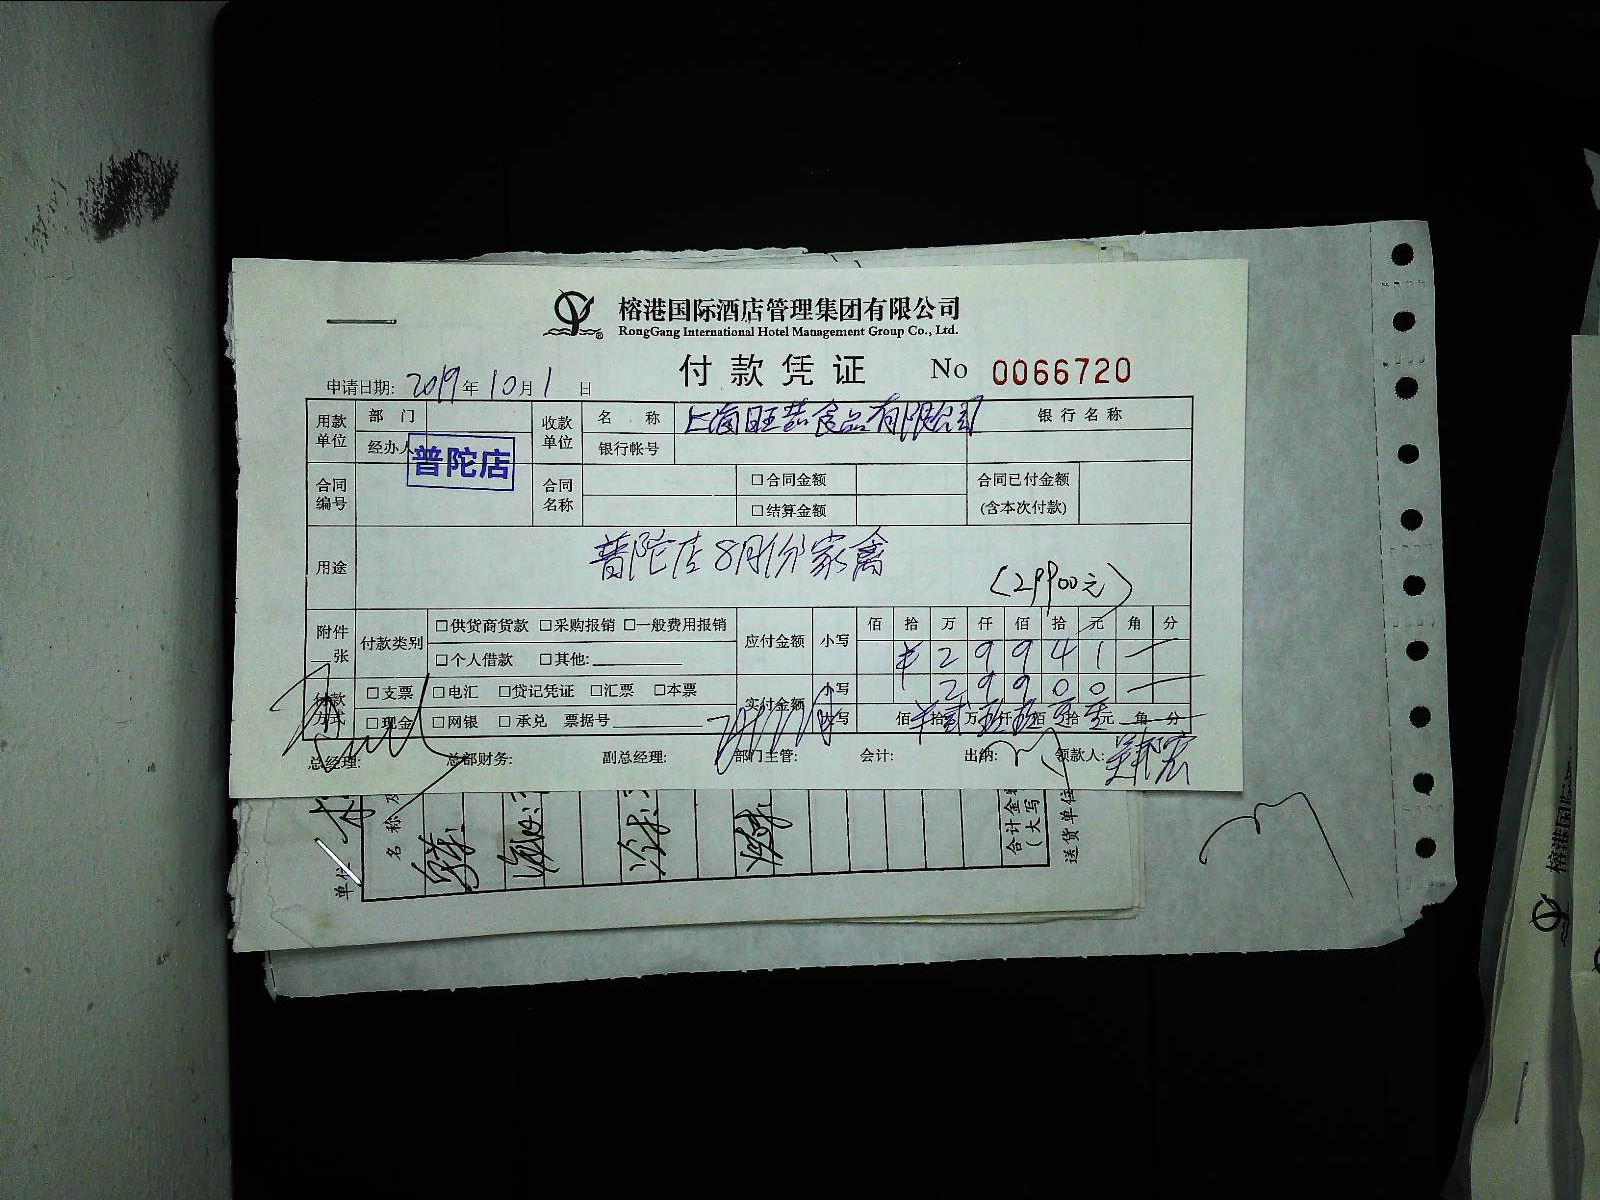 榕港国际酒店管理集团有限公司
RongGang International Hotel Management Group Co., Ltd.
付款凭证 No 0066720
申请日期: 2019年10月1日
用款单位 部门 收款单位 名称 上海旺喆食品有限公司 银行名称
经办人 普陀店 银行帐号
合同编号 合同名称 □合同金额 合同已付金额
□结算金额 (含本次付款)
用途 普陀店8月份家禽
(29900元)
附件 张 付款类别 □供货商货款 □采购报销 □一般费用报销 应付金额 小写 佰 拾 万 仟 佰 拾 元 角 分
□个人借款 □其他: ¥29941
付款方式 □支票 □电汇 □贷记凭证 □汇票 □本票 实付金额 小写 29900
□现金 □网银 □承兑 票据号 大写 佰 拾 万 仟 佰 拾 元 角 分
总经理: 总部财务: 副总经理: 部门主管: 会计: 出纳: 领款人:
单位
名称及
合计金额
(大写)
送货单位
榕港国际